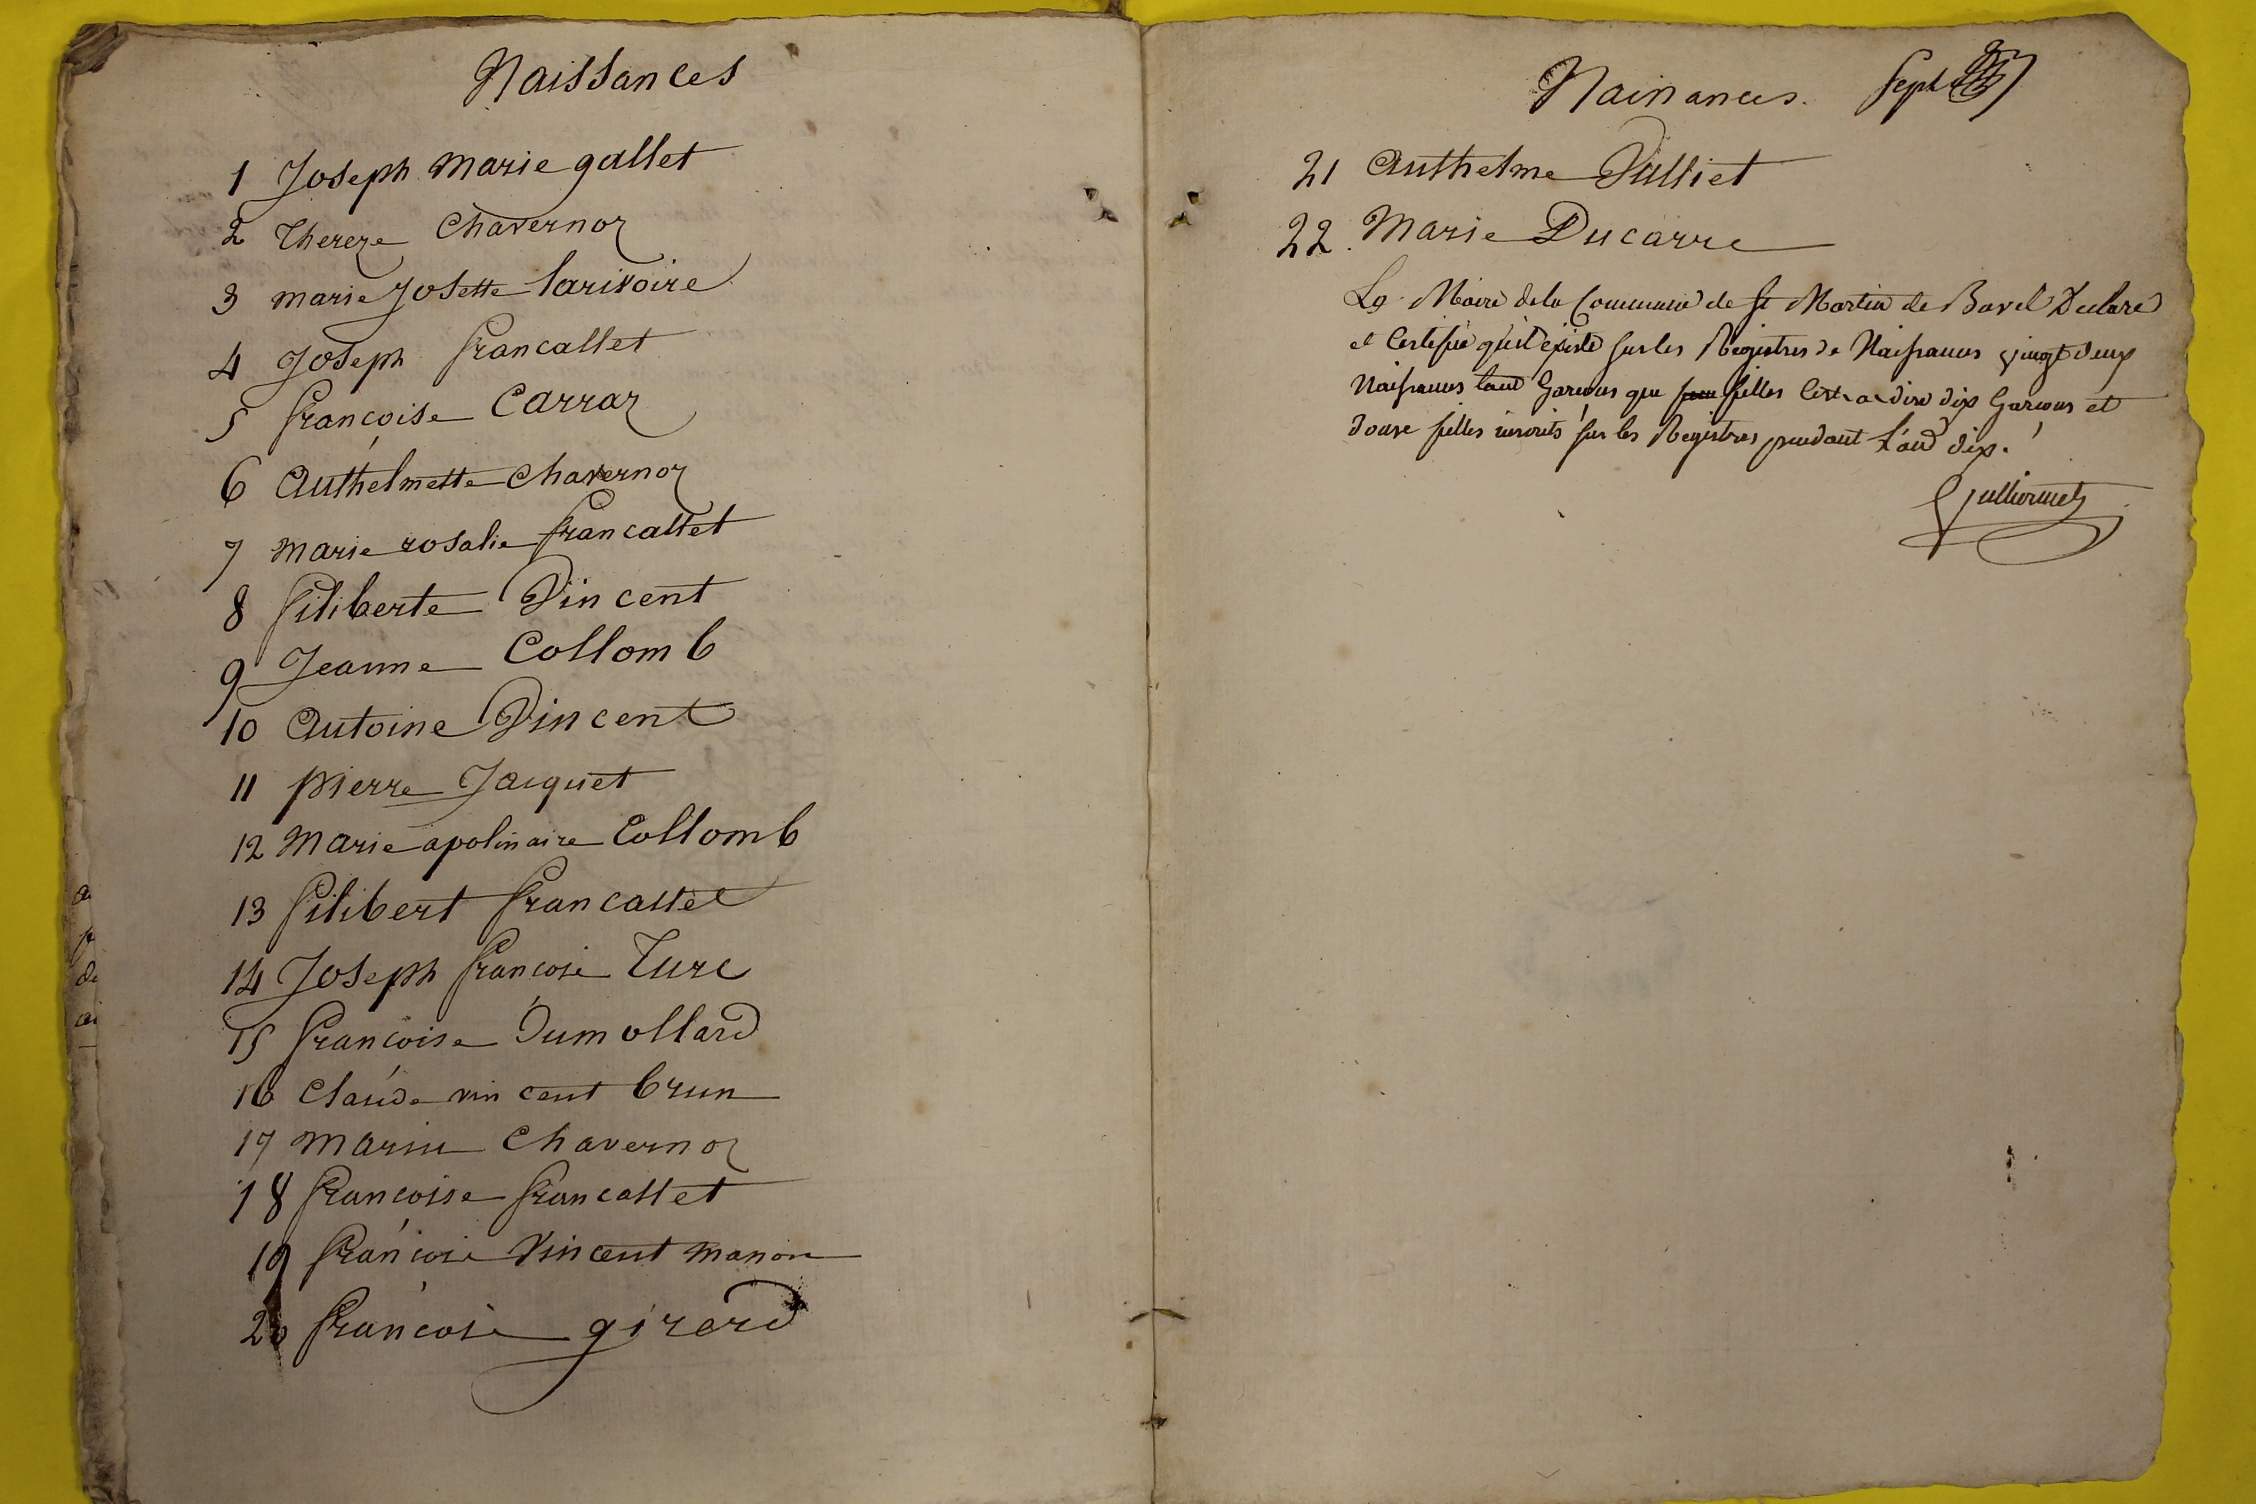 Naissances
1 Joseph Marie gallet
2 Thereze Chavernoz
3 marie Josette larivoire
4 Joseph francallet
5 françoise Carraz
6 Anthelmette Chavernoz
7 marie rosalie francallet
8 filiberte Vincent
9 Jeanne Collomb
10 Antoine Vincent
11 pierre Jacquet
12 Marie apolinaire Collomb
13 filibert francallet
14 Joseph françois Turc
15 françoise Dumollard
16 Claude vincent brun
17 Marie Chavernoz
18 françoise francallet
19 françois Vincent manon
20 françois girard
Naissances. Sept
21 Anthelme Vulliet
22. Marie Ducarre
Le Maire de la Commune de St Martin de Bavel Declare
et Certifie qu'il existe sur les Registres de Naissances vingt deux
Naissances tant Garçons que filles C'est-a-dire dix Garçons et
douze filles inscrits sur les Registres pendant L'an dix.